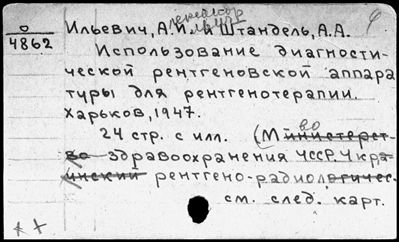 0
4862
Ильевич, А.И. и Штандель, А.А.
Использование диагности-
ческой рентгеновской аппара
туры для рентгенотерапии.
Харьков, 1947.
24 стр. с илл. (Министерст-
во здравоохранения УССР. Укра-
инский рентгено-радиологичес.
см. след. карт.